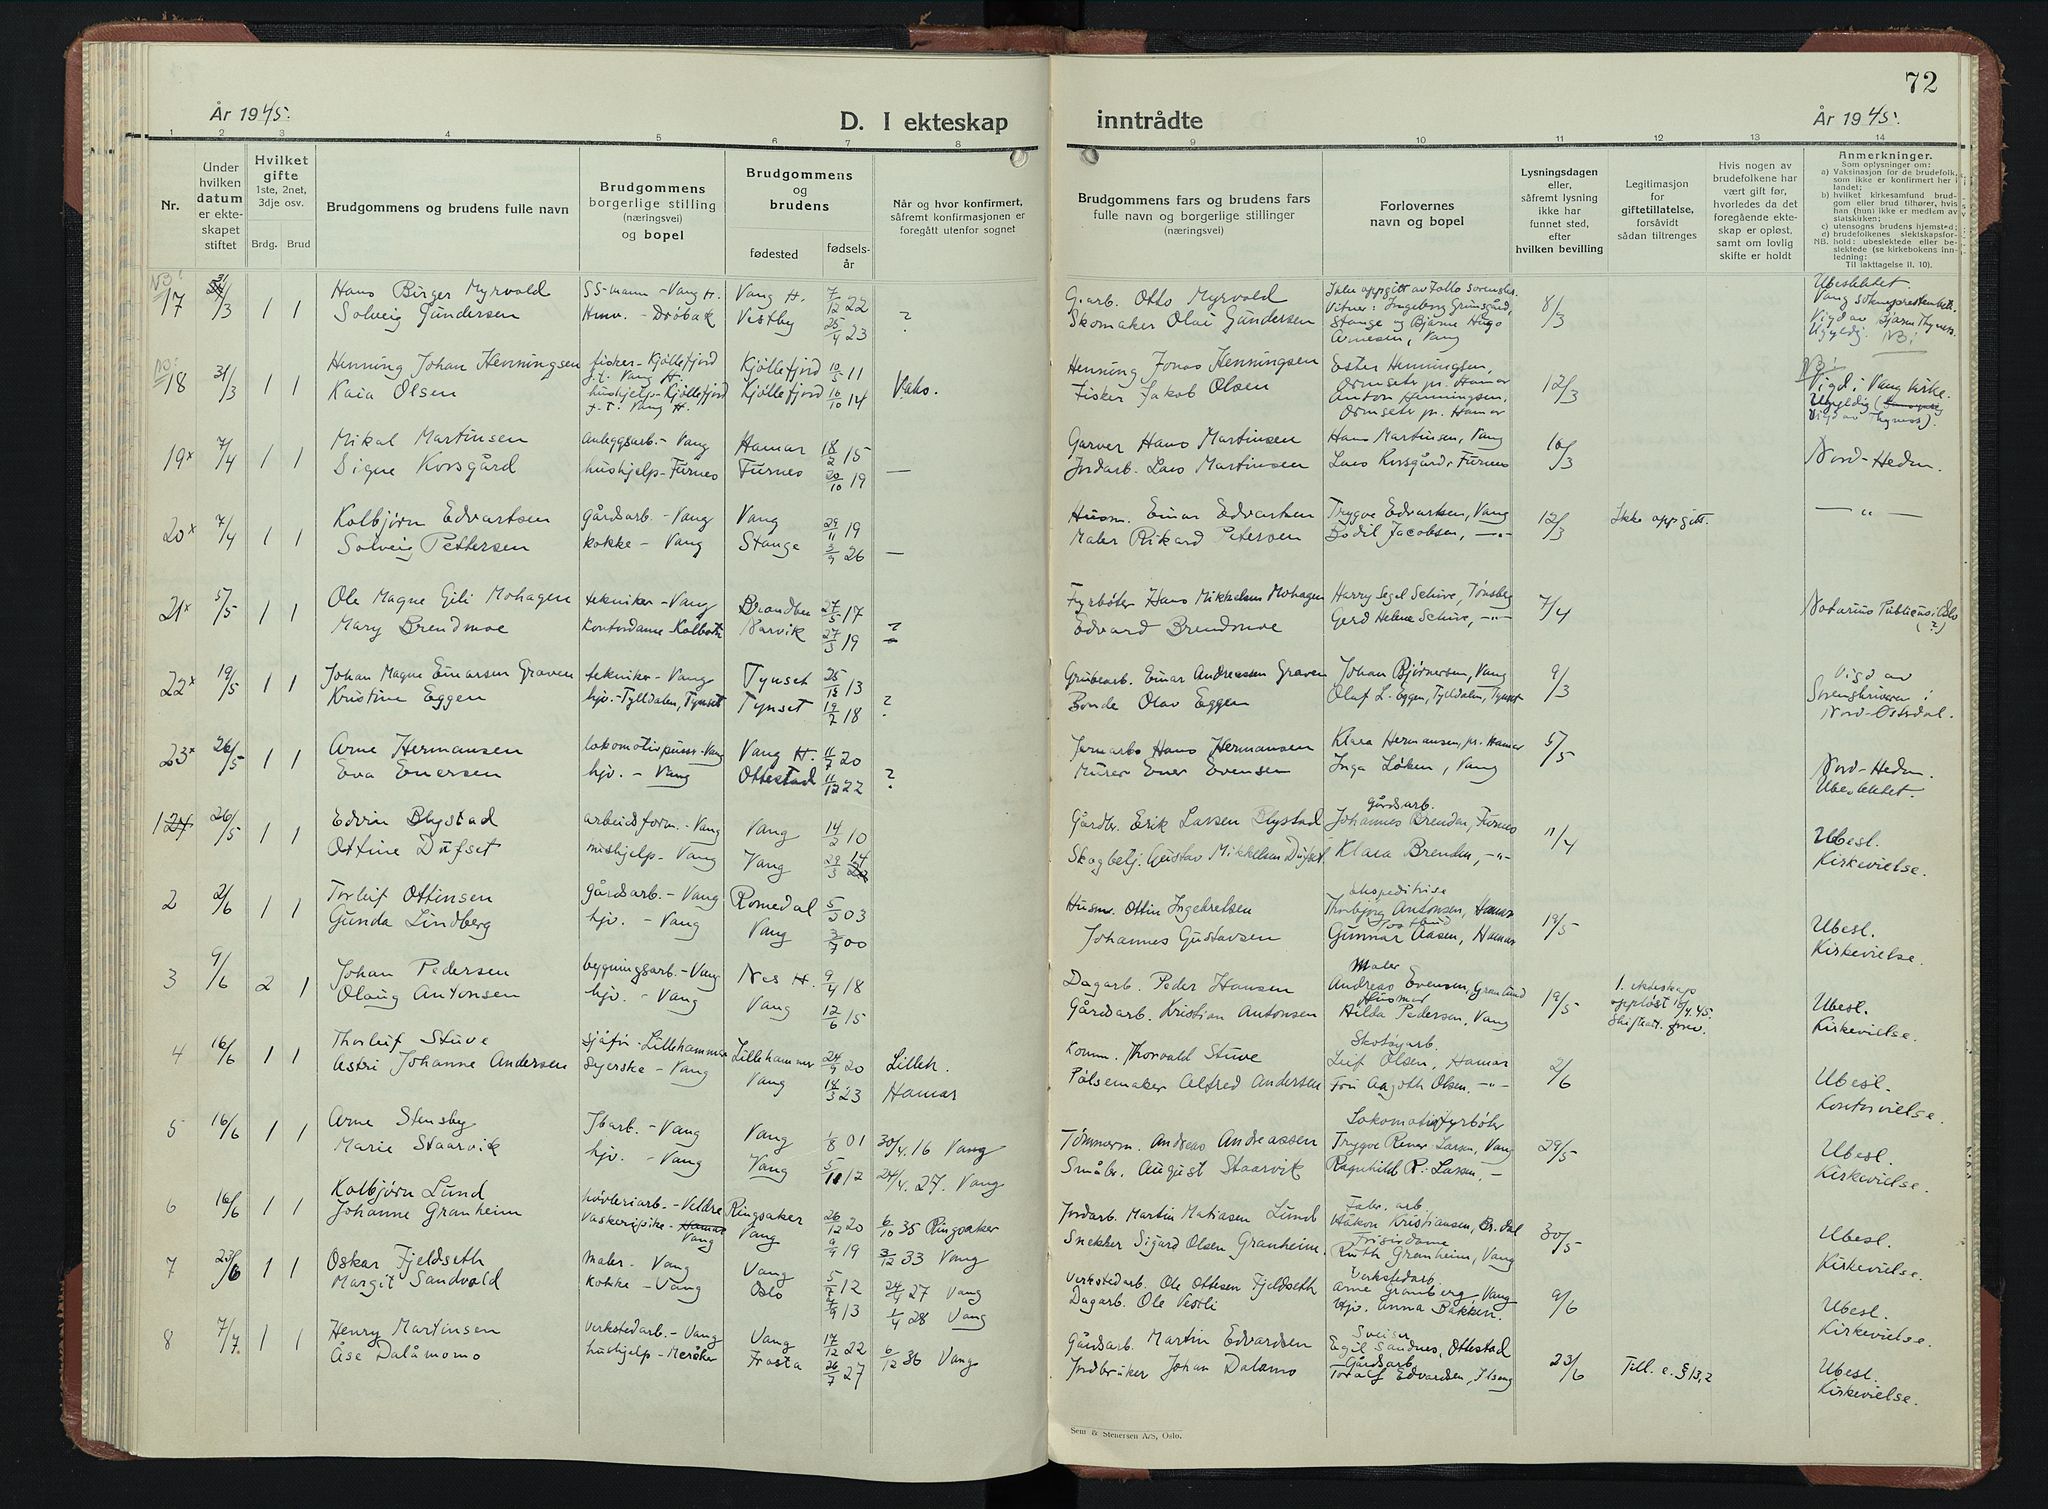 År 1945.
D. I ekteskap
1 2 3 4 5 6 7 8
Nr.
Under hvilken datum er ekteskapet stiftet
Hvilket gifte 1ste, 2net, 3dje osv.
Brdg. Brud
Brudgommens og brudens fulle navn
Brudgommens borgerlige stilling (næringsvei) og bopel
Brudgommens og brudens
fødested fødselsår
Når og hvor konfirmert, såfremt konfirmasjonen er foregått utenfor sognet
NB!
17 31/3 1 1 Hans Birger Myrvold SS-mann - Vang H. Vang H. 7/12 22
Solveig Gundersen Hmv. - Drøbak Vestby 25/4 23 ?
NB!
18 31/3 1 1 Henning Johan Henningsen fisker - Kjøllefjord f.t. Vang H. Kjøllefjord 10/5 11
Kaia Olsen hushjelp - Kjøllefjord f.t. Vang H. Kjøllefjord 16/10 14 Vaks.
19x 7/4 1 1 Mikal Martinsen anleggsarb. - Vang Hamar 18/2 15
Signe Korsgård hushjelp - Furnes Furnes 20/10 19 —
20x 7/4 1 1 Kolbjørn Edvartsen gårdsarb. - Vang Vang 29/11 19
Solveig Pettersen kokke - Vang Stange 3/9 26 —
21x 5/5 1 1 Ole Magne Gili Mohagen tekniker - Vang Brandbu 27/5 17
Mary Brendmoe kontordame Kolbotn Narvik 27/3 19 ?
22x 19/5 1 1 Johan Magne Einarsen Graven tekniker - Vang Tynset 25/12 13
Kristine Eggen hjv. - Tylldalen, Tynset Tynset 19/2 18 ?
23x 26/5 1 1 Arne Hermansen lokomotivpuss. - Vang Vang H. 11/7 20
Eva Enersen hjv. - Vang Ottestad 11/12 22 ?
1 24 26/5 1 1 Edvin Blystad arbeidsform. - Vang Vang 14/2 10
Ottine Dufset hushjelp - Vang Vang 29/3 14
2 2/6 1 1 Torleif Ottinsen gårdsarb. - Vang Romedal 5/5 03
Gunda Lindberg hjv. - Vang Vang 3/7 00
3 9/6 2 1 Johan Pedersen bygningsarb. - Vang Nes H. 9/4 18
Olaug Antonsen hjv. - Vang Vang 12/6 15
4 16/6 1 1 Thorleif Stuve sjåfør - Lillehammer Lillehammer 24/9 20 Lilleh.
Astri Johanne Andersen syerske - Vang Vang 14/3 23 Hamar
5 16/6 1 1 Arne Stensby Jbarb. - Vang Vang 1/8 01 30/4.16 Vang
Marie Staarvik hjv. - Vang Vang 5/11 12 24/4.27. Vang
6 16/6 1 1 Kolbjørn Lund høvleriarb. - Veldre Ringsaker 26/12 20 6/10 35 Ringsaker
Johanne Granheim vaskeripike - Hamar Vang Vang 9/9 19 3/12 33 Vang
7 23/6 1 1 Oskar Fjeldseth maler - Vang Vang 5/7 12 24/4 27 Vang
Margit Sandvold kokke - Vang Oslo 2/9 13 1/4 28 Vang
8 7/7. 1 1 Henry Martinsen verkstedarb. - Vang Vang 17/12 22 6/12 36 Vang
Åse Dalåmomo hushjelp - Meråker Frosta 26/7 27
72
inntrådte
År 1945.
9 10 11 12 13 14
Brudgommens fars og brudens fars fulle navn og borgerlige stillinger (næringsvei)
Forlovernes navn og bopel
Lysningsdagen eller, såfremt lysning ikke har funnet sted, efter hvilken bevilling
Legitimasjon for giftetillatelse, forsåvidt sådan tiltrenges
Hvis nogen av brudefolkene har vært gift før, hvorledes da det foregående ekteskap er opløst, samt om lovlig skifte er holdt
Anmerkninger.
Som oplysninger om:
a) Vaksinasjon for de brudefolk, som ikke er konfirmert her i landet;
b) hvilket kirkesamfund brudgom eller brud tilhører, hvis han (hun) ikke er medlem av statskirken;
c) utensogns brudens hjemsted;
d) brudefolkenes slektskapsforhold: ubeslektede eller beslektede (se kirkebokens innledning:
NB. Til iakttagelse II. 10).
G.arb. Otto Myrvold Ikke oppgitt av Follo sorenskr. 8/3 Ubeslektet.
Skomaker Olai Gundersen Vitner: Ingeborg Grimsgård, Stange og Bjarne Hugo Arnesen, Vang Vang sokneprestembete. Vigd av Bjarne Thyness. Ugyldig. NB!
Henning Jonas Henningsen Ester Henningsen, Ormseter pr. Hamar 12/3 NB!
Fisker Jakob Olsen Anton Henningsen, Ormseter pr. Hamar Vigd i Vang kirke. Ugyldig (Vigd av Thyness).
Garver Hans Martinsen Hans Martinsen, Vang 10/3 Nord-Hedm.
Jordarb. Lars Martinsen Lars Korsgård, Furnes
Husm. Einar Edvartsen Trygve Edvartsen, Vang 12/3 Ikke oppgitt. — „ —
Maler Rikard Petersen Bodil Jacobsen, —„—
Fyrbøter Hans Mikkelsen Mohagen Harry Segel Schive, Tønsberg 7/4 Notarius Publicus i Oslo (?)
Edvard Brendmoe Gerd Helene Schive, —„—
Grubearb. Einar Andreassen Graven Johan Bjørnersen, Vang 9/3 Vigd av Sorenskriveren i Nord-Østerdal.
Bonde Olav Eggen Olaf L. Eggen, Tylldalen, Tynset
Jernarb. Hans Hermansen Klara Hermansen, pr. Hamar 5/5 Nord-Hedm.
Murer Ener Evensen Inga Løken, Vang Ubeslektet.
Gårdbr. Erik Larsen Blystad gårdsarb. Johannes Brenden, Furnes 11/4 Ubesl.
Skogbetj. Gustav Mikkelsen Dufset Klara Brenden, —„— Kirkevielse.
Husm. Ottin Ingebretsen ekspeditrise Thorbjørg Antonsen, Hamar 19/5 Ubesl.
Johannes Gustavsen Postbud Gunnar Aasen, Hamar Kirkevielse.
Dagarb. Peder Hansen Maler Andreas Evensen, Granlund 19/5 1. ekteskap oppløst 10/4.45. Skifteatt. forev. Ubesl.
Gårdsarb. Kristian Antonsen Husmor Hilda Pedersen, Vang Kirkevielse.
Komm. Thorvald Stuve Skotøyarb. Leif Olsen, Hamar 2/6 Ubesl.
Pølsemaker Alfred Andersen Fru Aagoth Olsen. —„— Kontorvielse.
Tømmerm. Andreas Andreassen Lokomotivfyrbøter Trygve Rener Larsen, Vang 29/5 Ubesl.
Småbr. August Staarvik Ragnhild R. Larsen, — Kirkevielse.
Jordarb. Martin Matiasen Lund Fabr. arb. Håkon Kristiansen, Br.dal 30/5 Ubesl.
Snekker Sigurd Olsen Granheim. Frisørdame Ruth Granheim, Vang Kirkevielse.
Verkstedarb. Ole Ottesen Fjeldseth Verkstedarb. Arne Granberg, Vang 9/6 Ubesl.
Dagarb. Ole Vestli Hjv. Anna Bakken. Kirkevielse.
Gårdsarb. Martin Edvardsen Sveiser Egil Sandnes, Ottestad 23/6 Till. e. § 13,2 Ubesl.
Jordbruker Johan Dalamo Gårdsarb. Toralf Edvardsen, Ilseng Kirkevielse.
Sem & Stenersen A/S, Oslo.